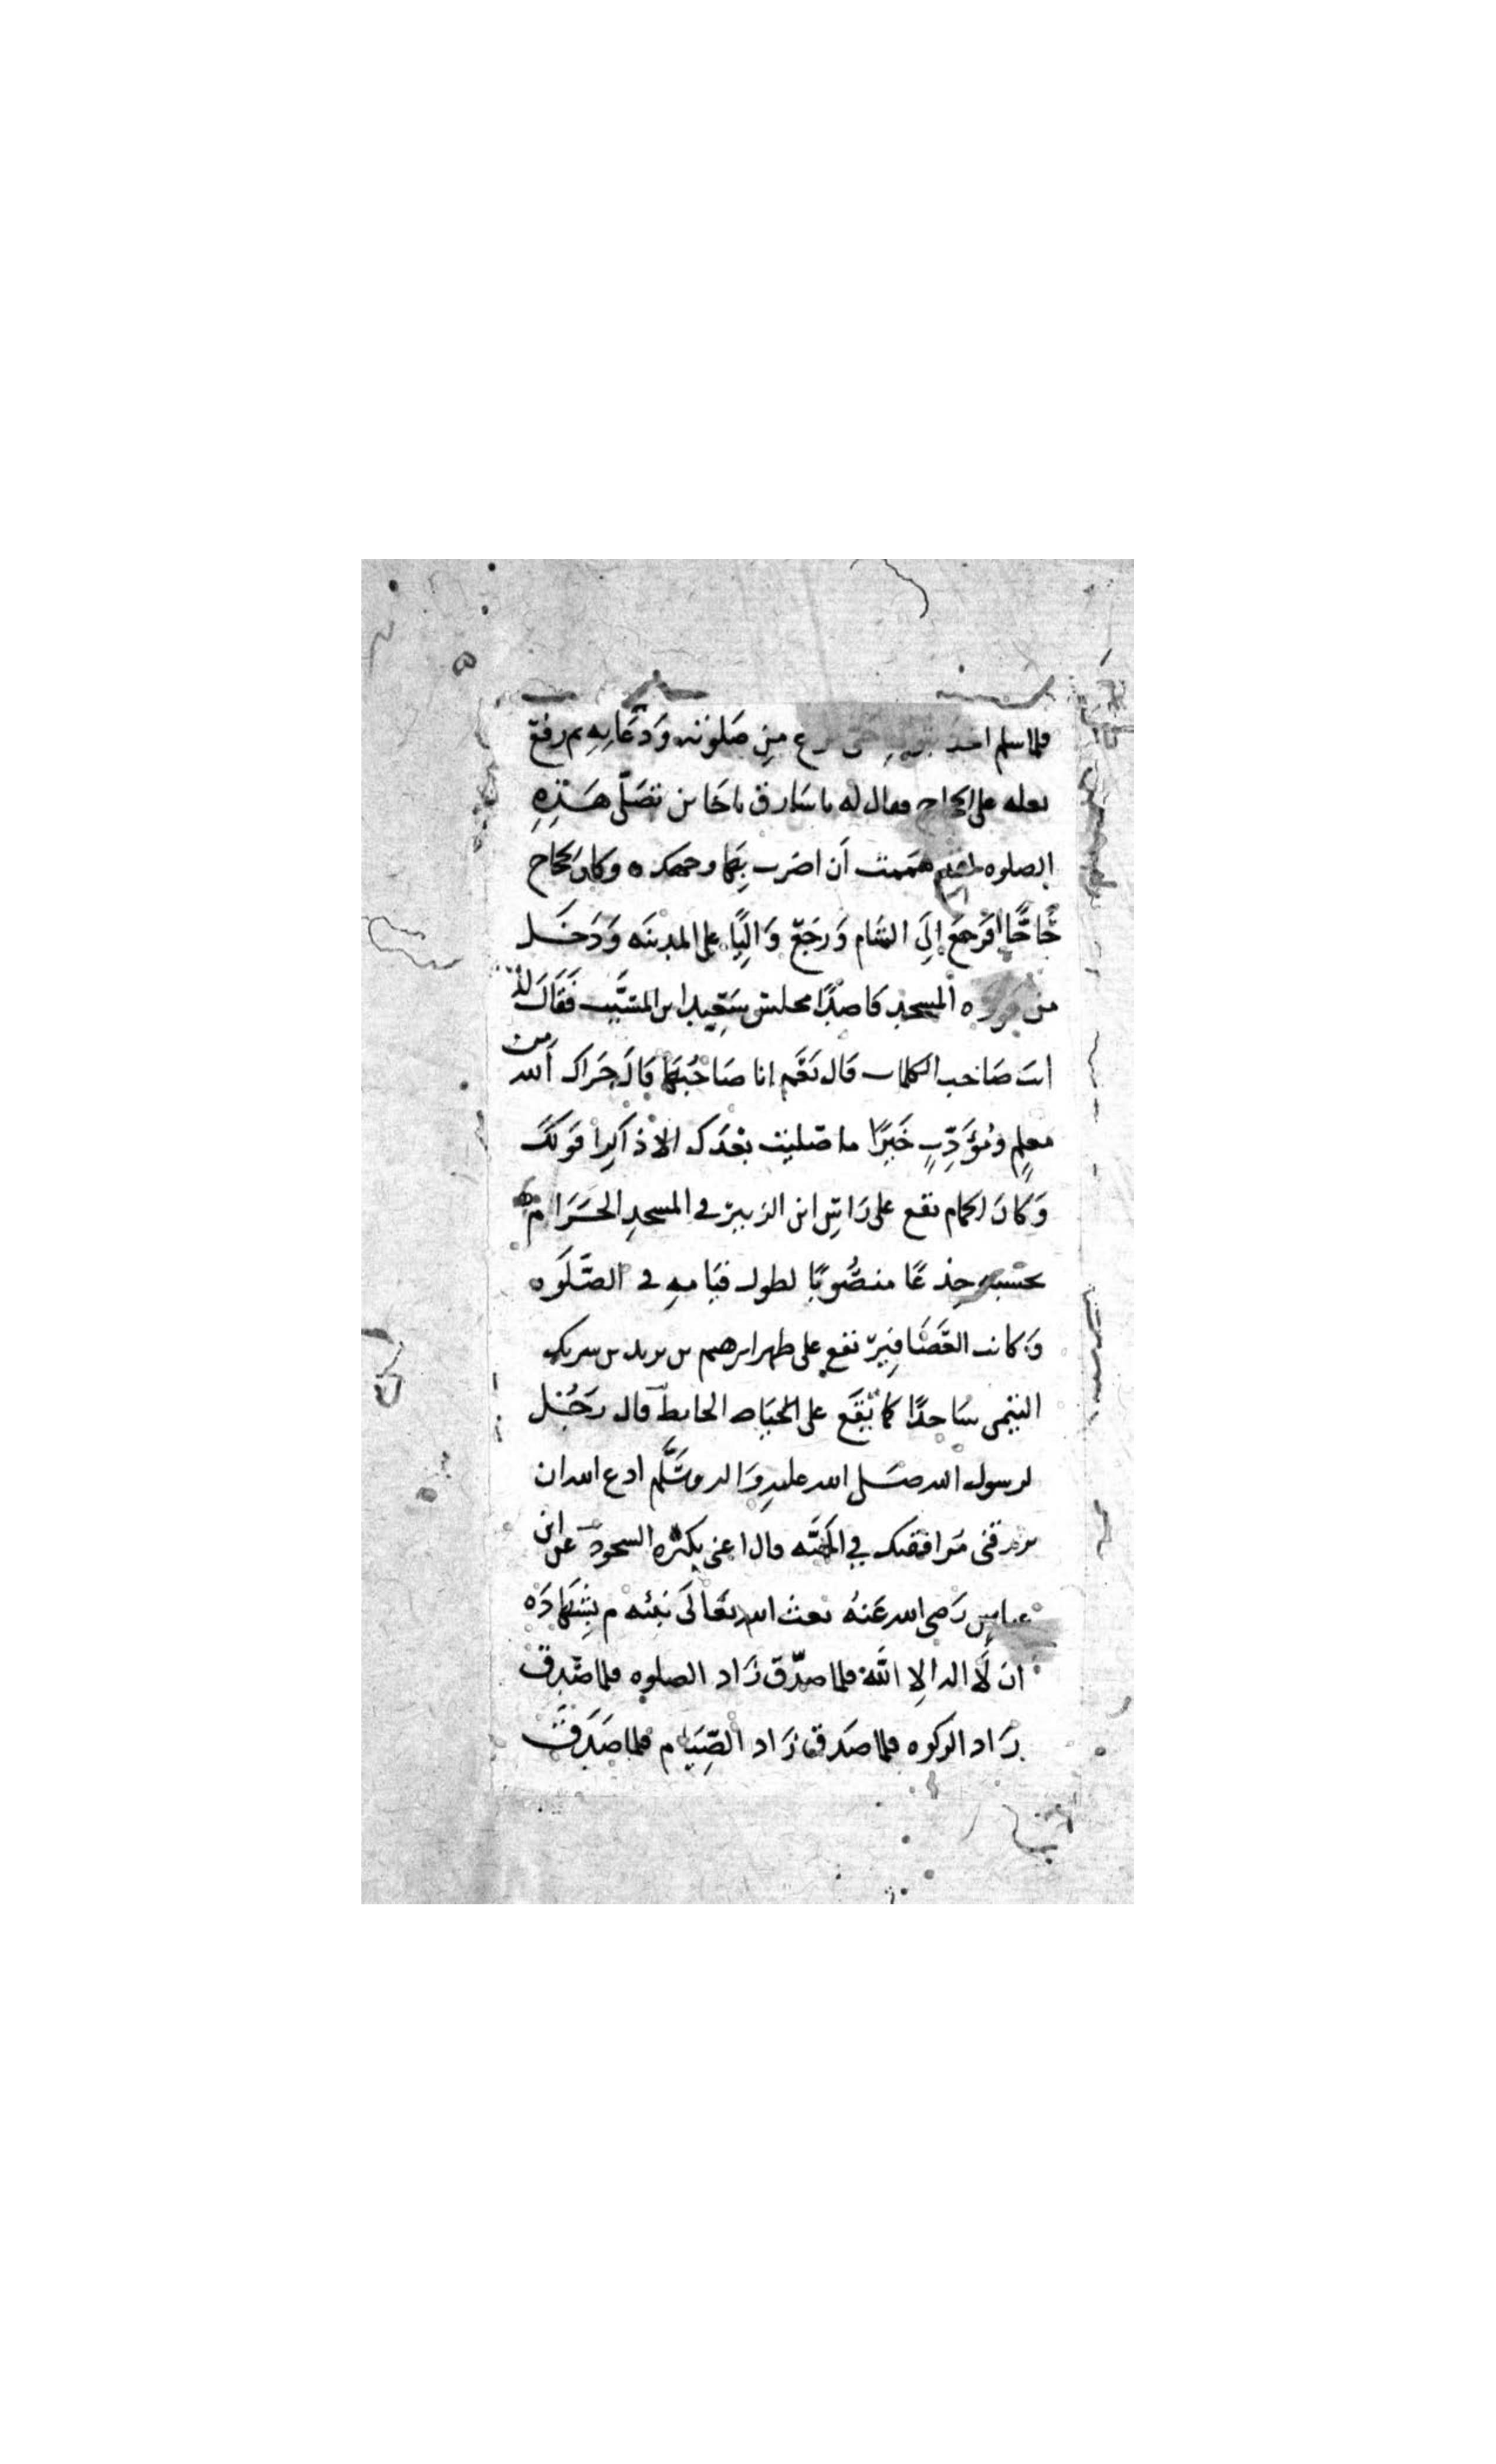 فلما سلم اخذ بثوبه حتى فرغ من صلوته وَدُعَايِهِ ثم رفع
نعله على الحجاج فقال له يا سَارق يا خَاين تُصَلّى هَذِهِ
الصلوه لقد هَممت أن اضرب بِهَا وجهك ه وكان الحجاج
حَاجًّا فَرجعَ إلَى الشام وَرجَعَ وَالِيًا على المدينَه وَدَخَل
من فوره المسجد قاصِدًا مجلس سَعِيد ابن المسَيَّب فَقَالَ له
انت صَاحب الكلمات قال نَعَم انا صَاحبُهَا قالَ جَزاك الله من
معلمٍ ومُؤَدِّبٍ خَيرًا ما صَليت بعْدَك الا ذَاكِرا قولَكَ
وَكَانَ الحمام يقع على رَاسِ ابن الزبير في المسجدِ الحَرَام
يحسبه جِذعًا منصُوبًا لطول قيَامِهِ في الصَّلَوه
وَكانت العَصَافِير تقع على ظهر ابرهيم بن يزيد بن شريك
التيمى سَاجدًا كما يَقَع على الحِيَاط الحايط قال رَجُل
لرسول الله صَلى الله عليهِ وَاله وسَلّم ادع الله ان
يرزقنى مُرافقتك في الجَنَّه قال اعنى بكثره السجود عن ابن
عباسٍ رَضى الله عَنهُ بعث الله تَعَالَى نَبيَّه م بِشهَادَه
ان لَا اله الا اللَّه فلما صدّق زَاد الصلوه فلما صَدّق
زَاد الزكوه فلما صَدق زَاد الصِّيَام فلما صَدَق